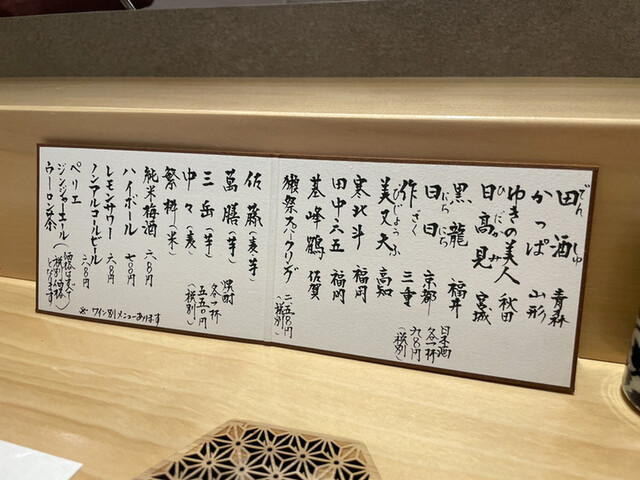 田酒 青森
でんしゅ
かっぱ 山形
ゆきの美人 秋田
日高見 宮城
ひたかみ
黒龍 福井
日日 京都
にちにち
作 三重
ざく
美丈夫 高知
びじょうふ
寒北斗 福岡
田中六五 福岡
基峰鶴 佐賀
日本酒
各一杯
九八〇円
(税別)
獺祭スパークリング 二、五八〇円
(税別)
佐藤(麦芋)
萬膳(芋)
三岳(芋)
中々(麦)
繁桝(米)
焼酎
各一杯
五五〇円
(税別)
純米梅酒 六八〇
ハイボール 七〇〇
レモンサワー 六八〇
ノンアルコールビール 六八〇
ペリエ
ジンジャーエール
ウーロン茶
(価格はすべて
税別価格
となります)
※ワイン別メニューあります